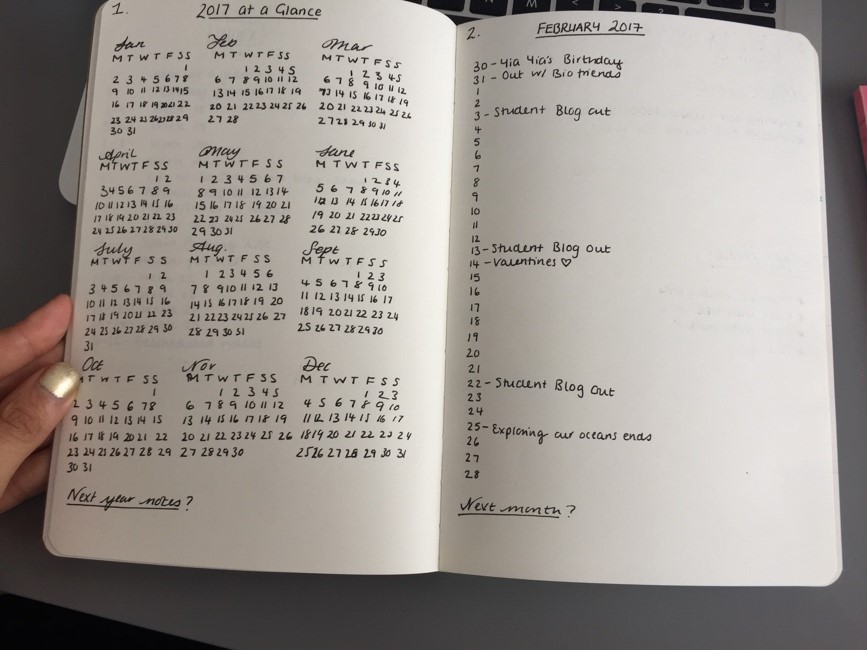 1.
2017 at a Glance
Jan
M T W T F S S
1
2 3 4 5 6 7 8
9 10 11 12 13 14 15
16 17 18 19 20 21 22
23 24 25 26 27 28 29
30 31
Feb
M T W T F S S
1 2 3 4 5
6 7 8 9 10 11 12
13 14 15 16 17 18 19
20 21 22 23 24 25 26
27 28
Mar
M T W T F S S
1 2 3 4 5
6 7 8 9 10 11 12
13 14 15 16 17 18 19
20 21 22 23 24 25 26
27 28 29 30 31
April
M T W T F S S
1 2
3 4 5 6 7 8 9
10 11 12 13 14 15 16
17 18 19 20 21 22 23
24 25 26 27 28 29 30
May
M T W T F S S
1 2 3 4 5 6 7
8 9 10 11 12 13 14
15 16 17 18 19 20 21
22 23 24 25 26 27 28
29 30 31
June
M T W T F S S
1 2 3 4
5 6 7 8 9 10 11
12 13 14 15 16 17 18
19 20 21 22 23 24 25
26 27 28 29 30
July
M T W T F S S
1 2
3 4 5 6 7 8 9
10 11 12 13 14 15 16
17 18 19 20 21 22 23
24 25 26 27 28 29 30
31
Aug.
M T W T F S S
1 2 3 4 5 6
7 8 9 10 11 12 13
14 15 16 17 18 19 20
21 22 23 24 25 26 27
28 29 30 31
Sept
M T W T F S S
1 2 3
4 5 6 7 8 9 10
11 12 13 14 15 16 17
18 19 20 21 22 23 24
25 26 27 28 29 30
Oct
M T W T F S S
1
2 3 4 5 6 7 8
9 10 11 12 13 14 15
16 17 18 19 20 21 22
23 24 25 26 27 28 29
30 31
Nov
M T W T F S S
1 2 3 4 5
6 7 8 9 10 11 12
13 14 15 16 17 18 19
20 21 22 23 24 25 26
27 28 29 30
Dec
M T W T F S S
1 2 3
4 5 6 7 8 9 10
11 12 13 14 15 16 17
18 19 20 21 22 23 24
25 26 27 28 29 30 31
Next year notes?
2.
FEBRUARY 2017
30 - Yia Yia's Birthday
31 - Out w/ Bio friends
1
2
3 - Student Blog out
4
5
6
7
8
9
10
11
12
13 - Student Blog out
14 - Valentines ♡
15
16
17
18
19
20
21
22 - Student Blog out
23
24
25 - Exploring our oceans ends
26
27
28
Next month?